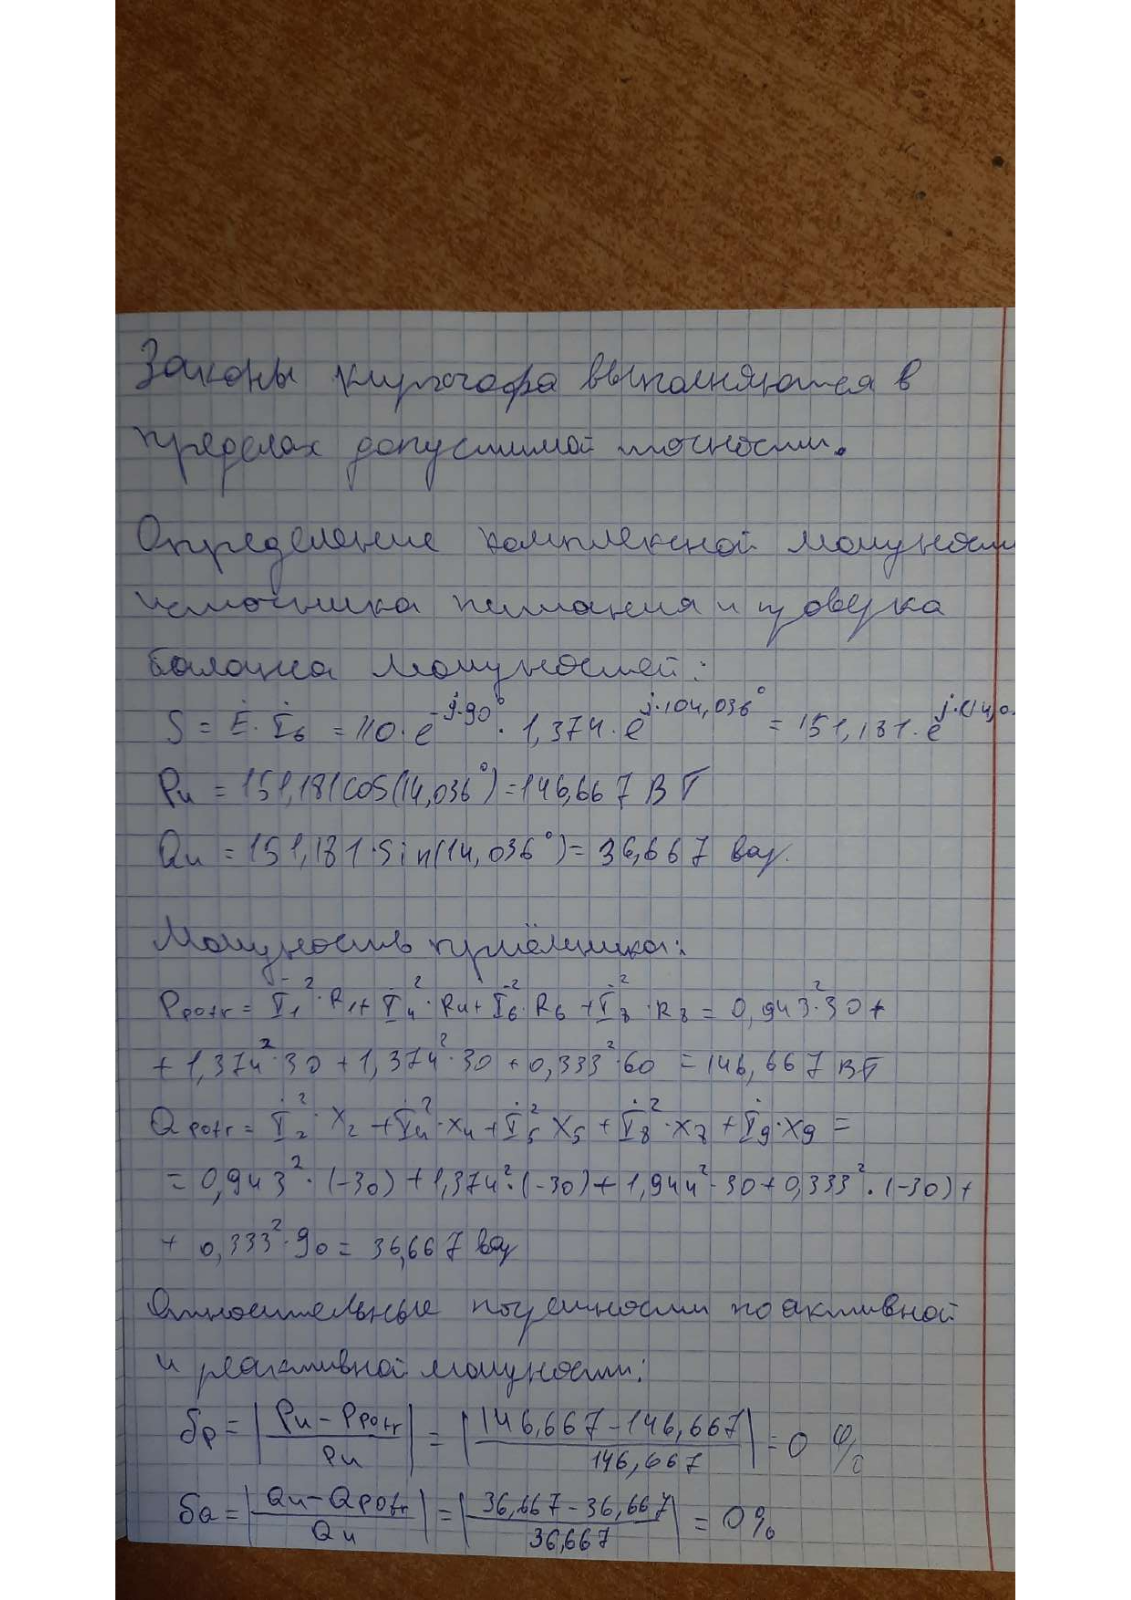 Законы кирхгофа выполняются в
пределах допустимой точности.
Определение комплексной мощности
источника питания и проверка
баланса мощностей:
S = Ė · İ₆ = 110 · e^(-j·90°) · 1,374 · e^(j·104,036°) = 151,181 · e^(j·(14,0
Pи = 151,181cos(14,036°) = 146,667 ВТ
Qи = 151,181·Sin(14,036°) = 36,667 вар.
Мощность приёмника:
Ppotr = İ₁²·R₁ + İ₄²·R₄ + İ₆²·R₆ + İ₈²·R₈ = 0,943²·30 +
+ 1,374²·30 + 1,374²·30 + 0,333²·60 = 146,667 ВТ
Qpotr = İ₂²·X₂ + İ₄²·X₄ + İ₅²X₅ + İ₈²·X₈ + İ₉·X₉ =
= 0,943²·(-30) + 1,374²·(-30) + 1,944²·30 + 0,333²·(-30) +
+ 0,333²·90 = 36,667 вар
Относительные погрешности по активной
и реактивной мощности:
δp = |(Pи - Ppotr)/Pи| = |(146,667 - 146,667)/146,667| = 0 %
δQ = |(Qи - Qpotr)/Qи| = |(36,667 - 36,667)/36,667| = 0%